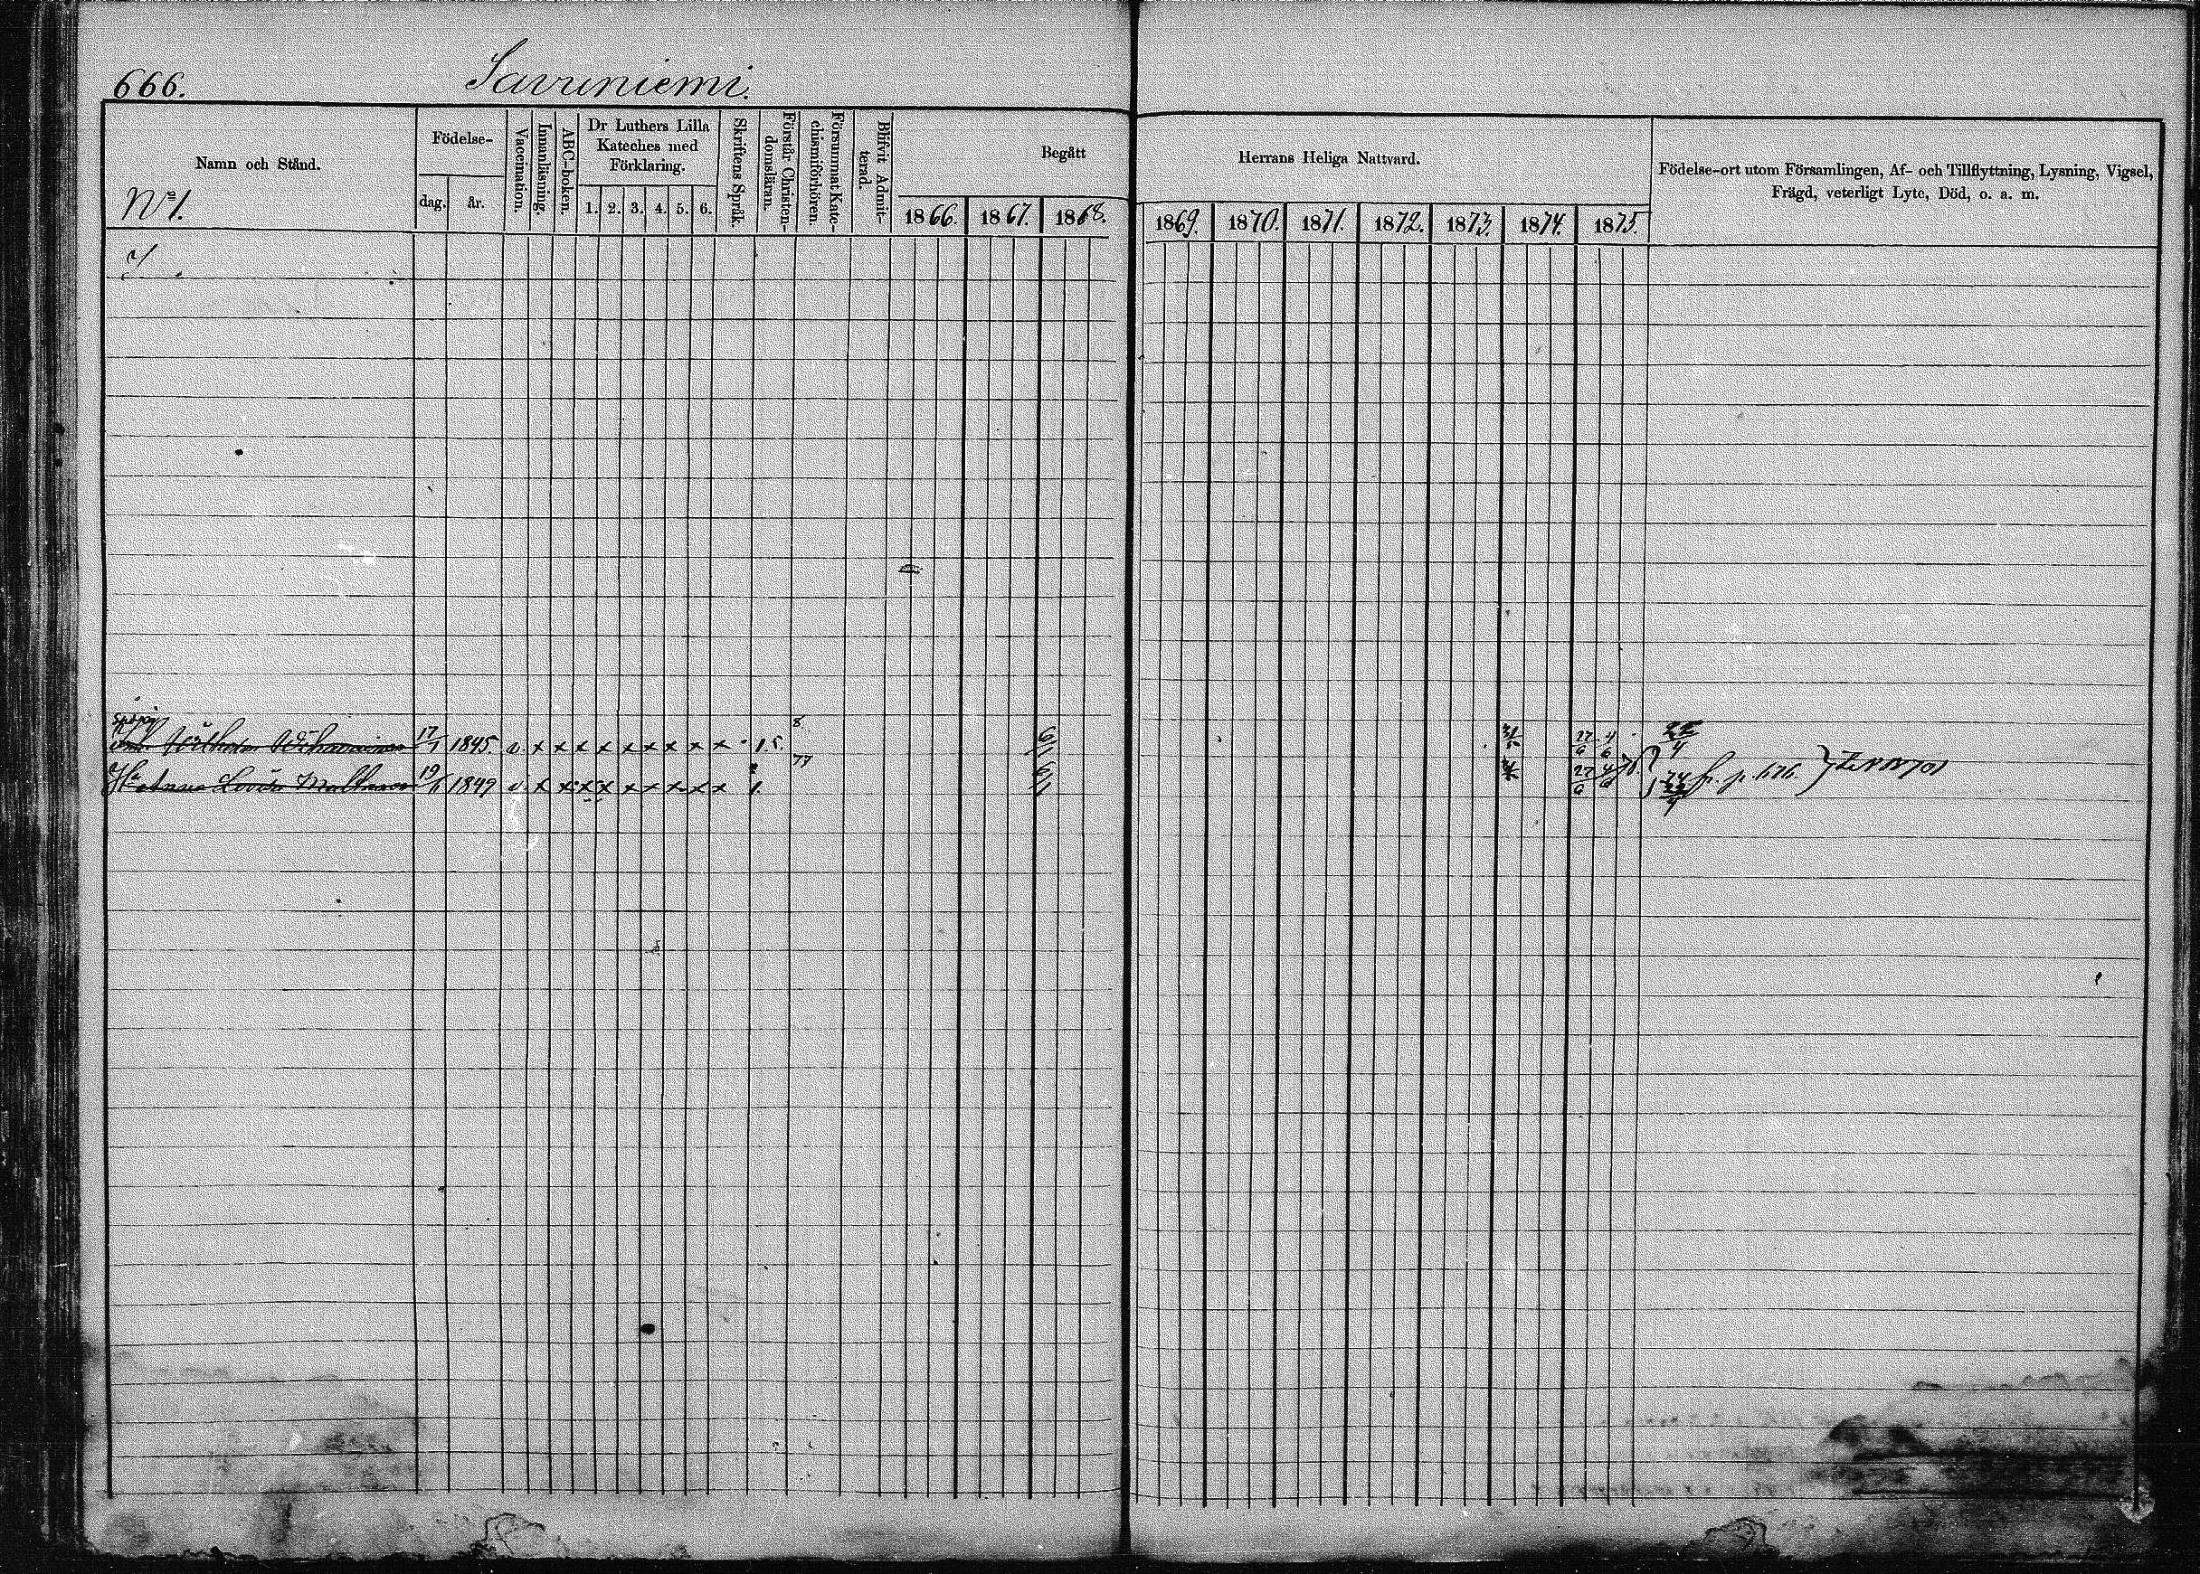 666. Savuniemi.
Namn och Stånd.
No 1.
Födelse-
dag. år.
Vaccination.
Innanläsning.
ABC-boken.
Dr Luthers Lilla
Kateches med
Förklaring.
1. 2. 3. 4. 5. 6.
Skriftens Språk.
Förstår Christen-
domsläran.
Försummat Kate-
chismiförhören.
Blifvit Admit-
terad.
Begått
1866. 1867. 1868.
Herrans Heliga Nattvard.
1869. 1870. 1871. 1872. 1873. 1874. 1875.
Födelse-ort utom Församlingen, Af- och Tillflyttning, Lysning, Vigsel,
Frägd, veterligt Lyte, Död, o. a. m.
Wilhelm 17/1 1845. v. x x x x x x x x x
Hu Anna Lovisa 19/ 1849 v. x x x x x x x x x 1.
27/6 4/6
27/6 fr. p. 676.